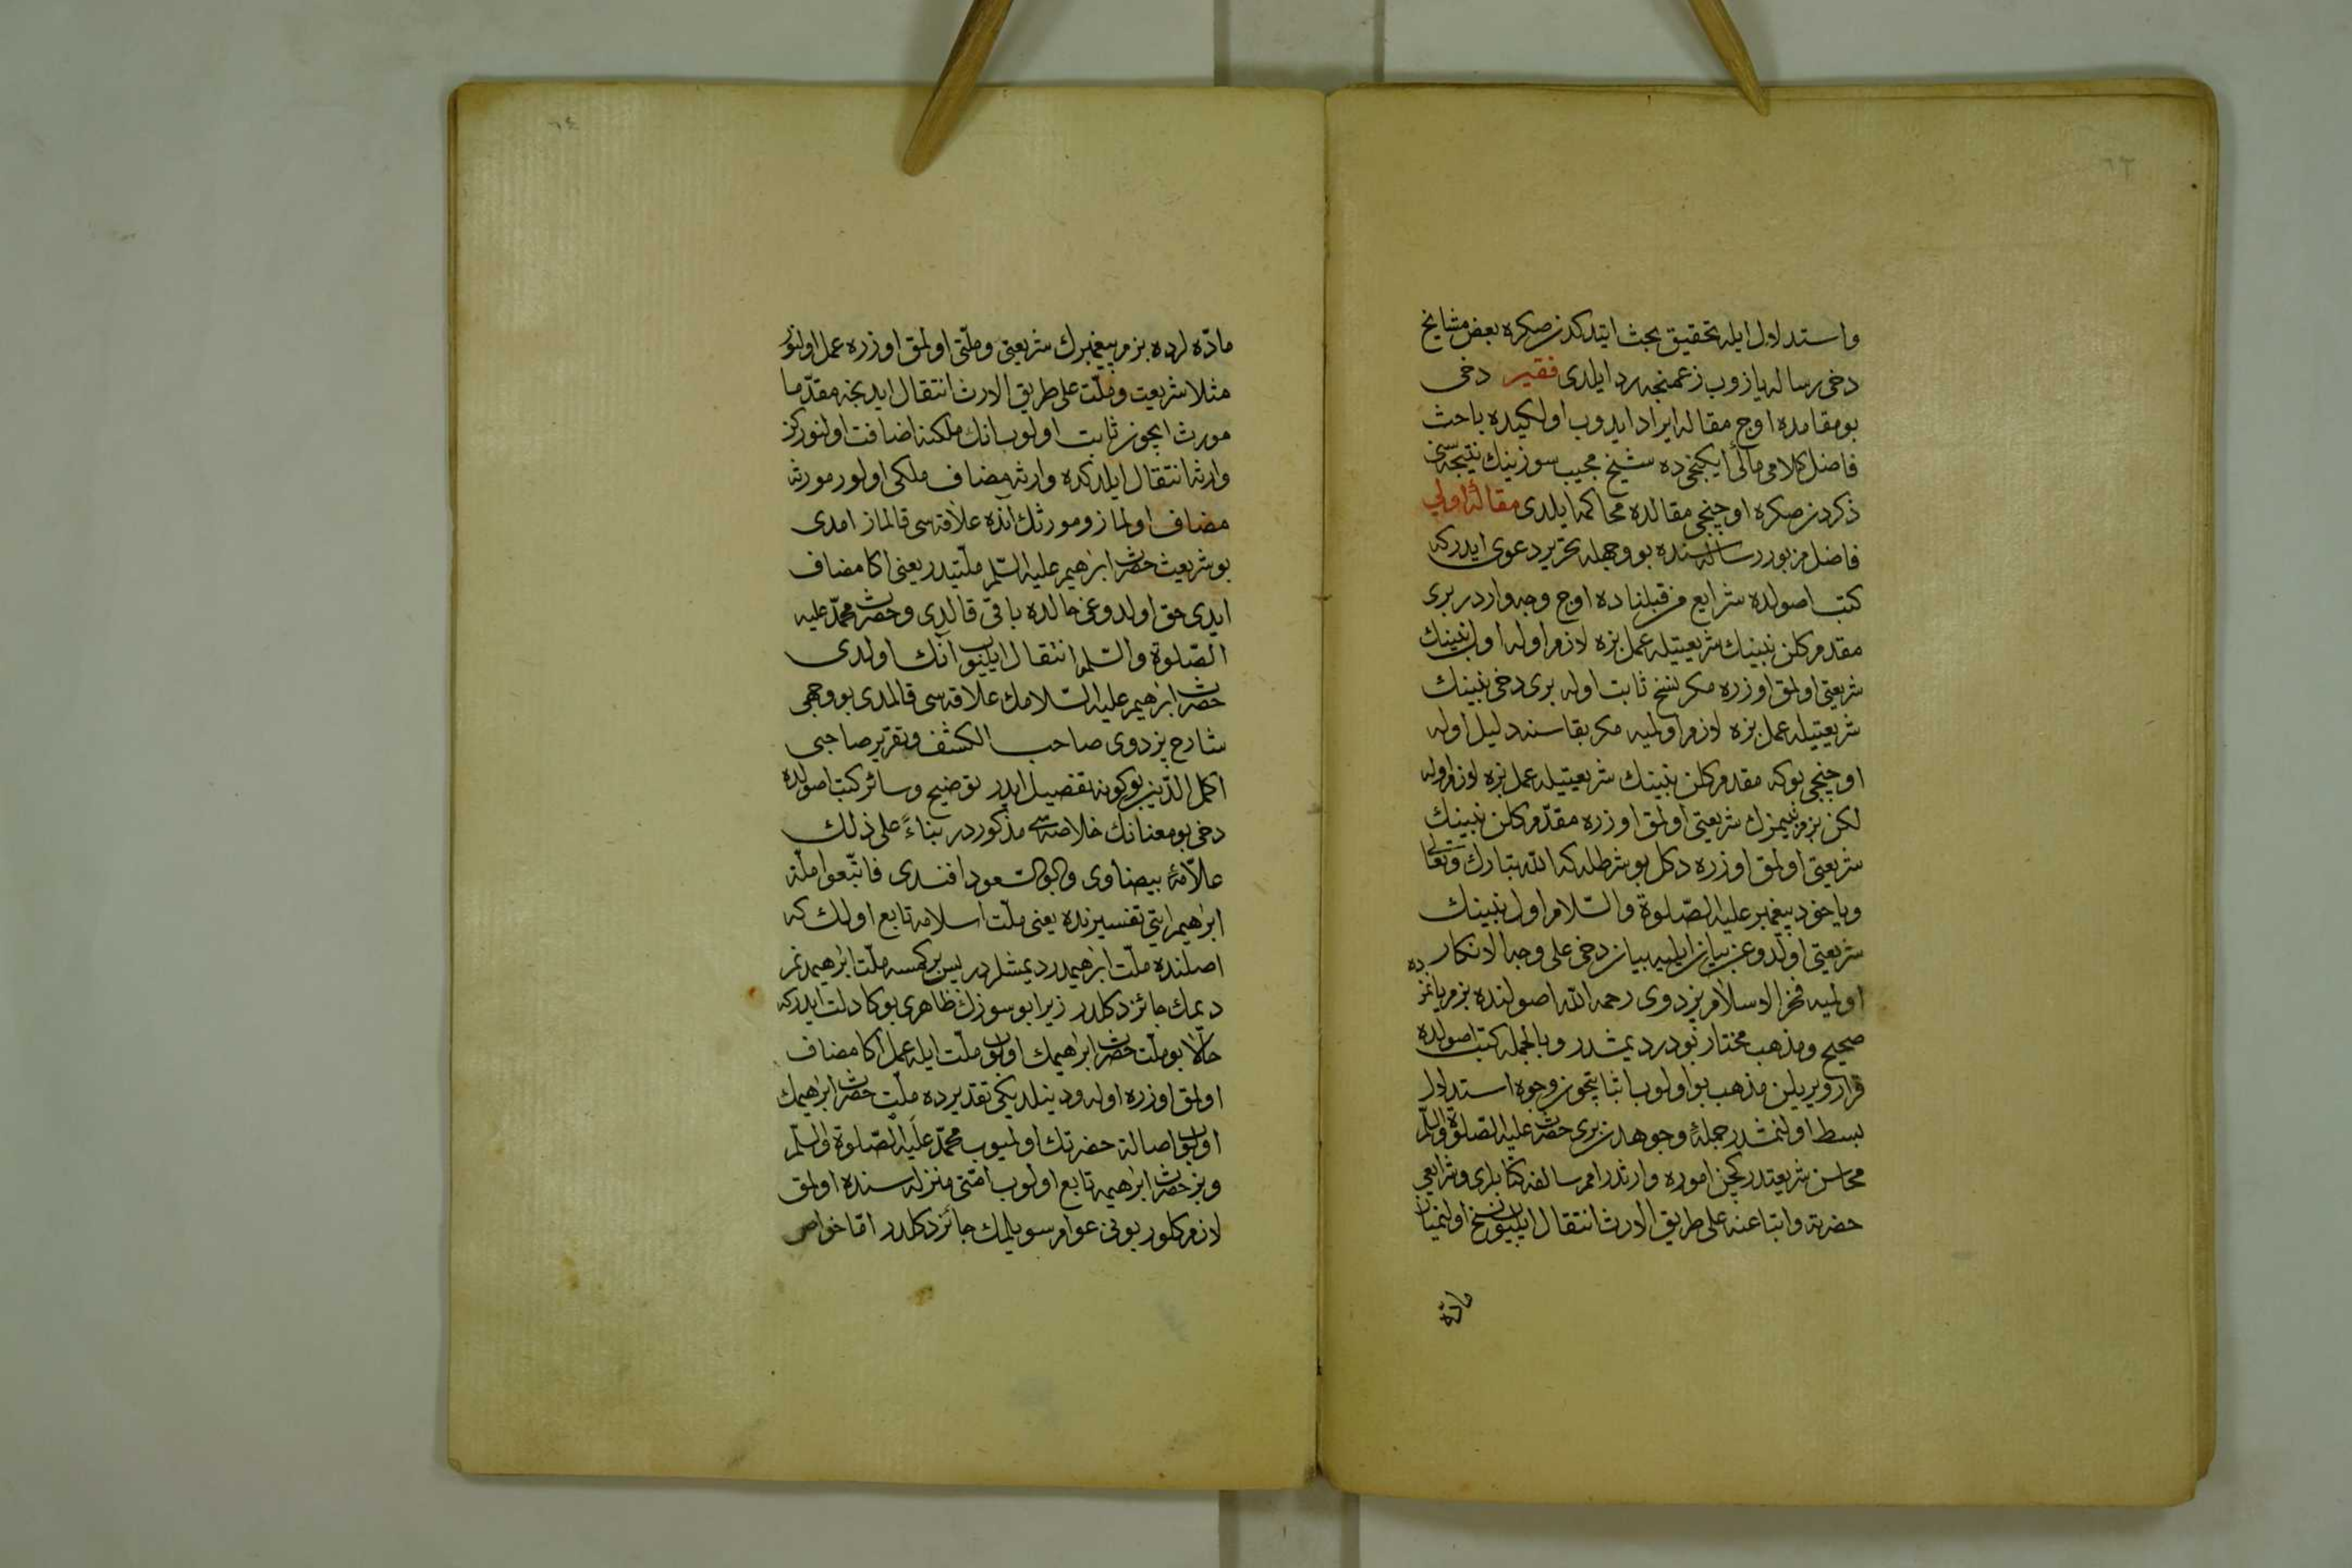 ٦٣
واستدلال ايله تحقيق بحث ايتدكدن صكره بعض مشايخ
دخى رساله يازوب زعمنجه رد ايلدى فقير دخى
بو مقامده اوچ مقاله ايراد ايدوب اولكيده باحث
فاضل كلامى مآلى ايكنجى ده شيخ مجيب سوزينك نتيجه سى
ذكردن صكره اوچنجى مقالده محاكمه ايلدى مقالۀ اولى
فاضل مزبور رساله سنده بو وجهله تحرير دعوى ايدر كه
كتب اصولده شرايع من قبلنا ده اوچ وجه وارددر برى
مقدم كلن نبينك شريعتيله عمل بزه لازم اوله اول نبينك
شريعتى اولمق اوزره مكر نسخ ثابت اوله برى دخى نبينك
شريعتيله عمل بزه لازم اولميه مكر بقاسنه دليل اوله
اوچنجى بو كه مقدم كلن نبينك شريعتيله عمل بزه لازم اوله
لكن بزم نبيمزك شريعتى اولمق اوزره مقدم كلن نبينك
شريعتى اولمق اوزره دكل بو شرطله كه الله تبارك وتعالى
ويا خود پيغمبر عليه الصلوة والسلام اول نبينك
شريعتى اولدوغن بيان ايليه بيان دخى على وجه الانكار
اولميه فخر الاسلام بزدوى رحمه الله اصولنده بزم يانمزده
صحيح ومذهب مختار بودر ديمشدر وبالجمله كتب اصولده
قرار ويريلن مذهب بو اولوب اثباتيچون وجوه استدلال
بسط اولنمشدر جملۀ وجوهدن برى حضرت عليه الصلوة والسلم
محاسن شريعتدن كچن اموره وارثدر امم سالفه كتابلرى وشرايعى
حضرته واتباعنه على طريق الارث انتقال ايليوب نسخ اولنميان
مادّه
٦٤
مادّه لرده بزم پيغمبرك شريعتى وملّتى اولمق اوزره عمل اولنور
مثلا شريعت وملّت على طريق الارث انتقال ايدنجه مقدّما
مورث ايچون ثابت اولوب انك ملكنه اضافت اولنوركن
وارثه انتقال ايلدكده وارثه مضاف ملكى اولور مورثه
مضاف اولماز ومورثك انده علاقه سى قالماز امدى
بو شريعت حضرت ابرهيم عليه السّلم ملّتيدر يعنى اكا مضاف
ايدى حق اولدوغى حالده باقى قالدى وحضرت محمّد عليه
الصّلوة والسّلمه انتقال ايليوب آنك اولدى
حضرت ابرهيم عليه السّلامك علاقه سى قالمدى بو وجهى
شارح بزدوى صاحب الكشف وتقرير صاحبى
اكمل الدّين بو كونه تفصيل ايدر توضيح وسائر كتب اصولده
دخى بو معنانك خلاصه سى مذكوردر بناءً على ذلك
علّامۀ بيضاوى وابو السّعود افندى فاتّبعوا ملّة
ابرهيم ايتى تفسيرنده يعنى ملّت اسلامه تابع اولك كه
اصلنده ملّت ابرهيمدر ديمشلردر پس بر كمسه ملّت ابرهيمدنم
ديمك جائز دكلدر زيرا بو سوزك ظاهرى بوكا دلالت ايدر كه
حالا بو ملّت حضرت ابراهيمك اولوب ملّت ايله عمل اكا مضاف
اولمق اوزره اوله ودينلديكى تقديرده ملّت حضرت ابراهيمك
اولوب اصالة حضرتك اولميوب محمّد عليه الصّلوة والسّلم
وبز حضرت ابرهيمه تابع اولوب امّتى منزله سنده اولمق
لازم كلور بونى عوام سويلمك جائز دكلدر امّا خواص